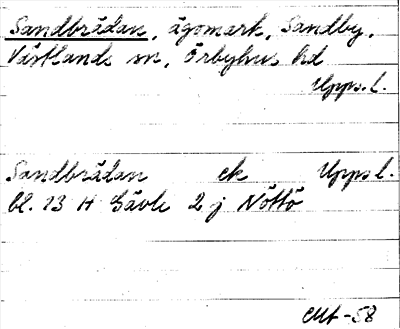 Sandbrädan, ägomark, Sandby,
Västlands sn, Örbyhus hd
Upps. l.
Sandbrädan ek Upps l.
bl. 13 H Gävle 2 j Nöttö
-58